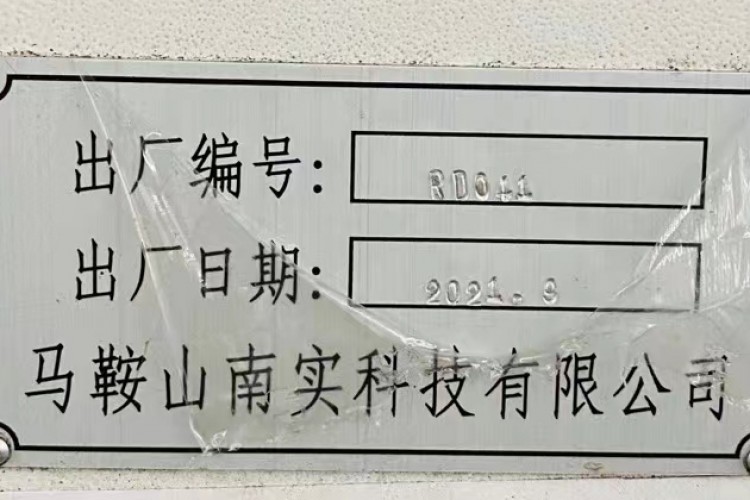 出厂编号: RD041
出厂日期: 2021.8
马鞍山南实科技有限公司